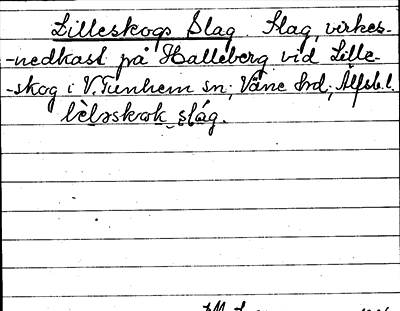 Lilleskogs Slag Slag, virkes-
-nedkast på Halleberg vid Lille-
-skog i V. Tunhem sn; Väne hrd; Älfsb. l.